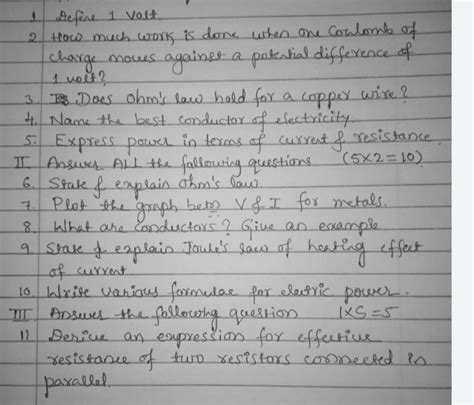 1 Define 1 Volt.
2 How much work is done when one Coulomb of
charge moves against a potential difference of
1 volt?
3. Does Ohm's law hold for a copper wire?
4. Name the best conductor of electricity.
5. Express power in terms of current & resistance.
II Answer ALL the following questions (5x2=10)
6. State & explain Ohm's law.
7. Plot the graph betn V & I for metals.
8. What are conductors? Give an example.
9. State & explain Joule's law of heating effect
of current.
10. Write various formulae for electric power.
III Answer the following question 1x5=5
11. Derive an expression for effective
resistance of two resistors connected in
parallel.